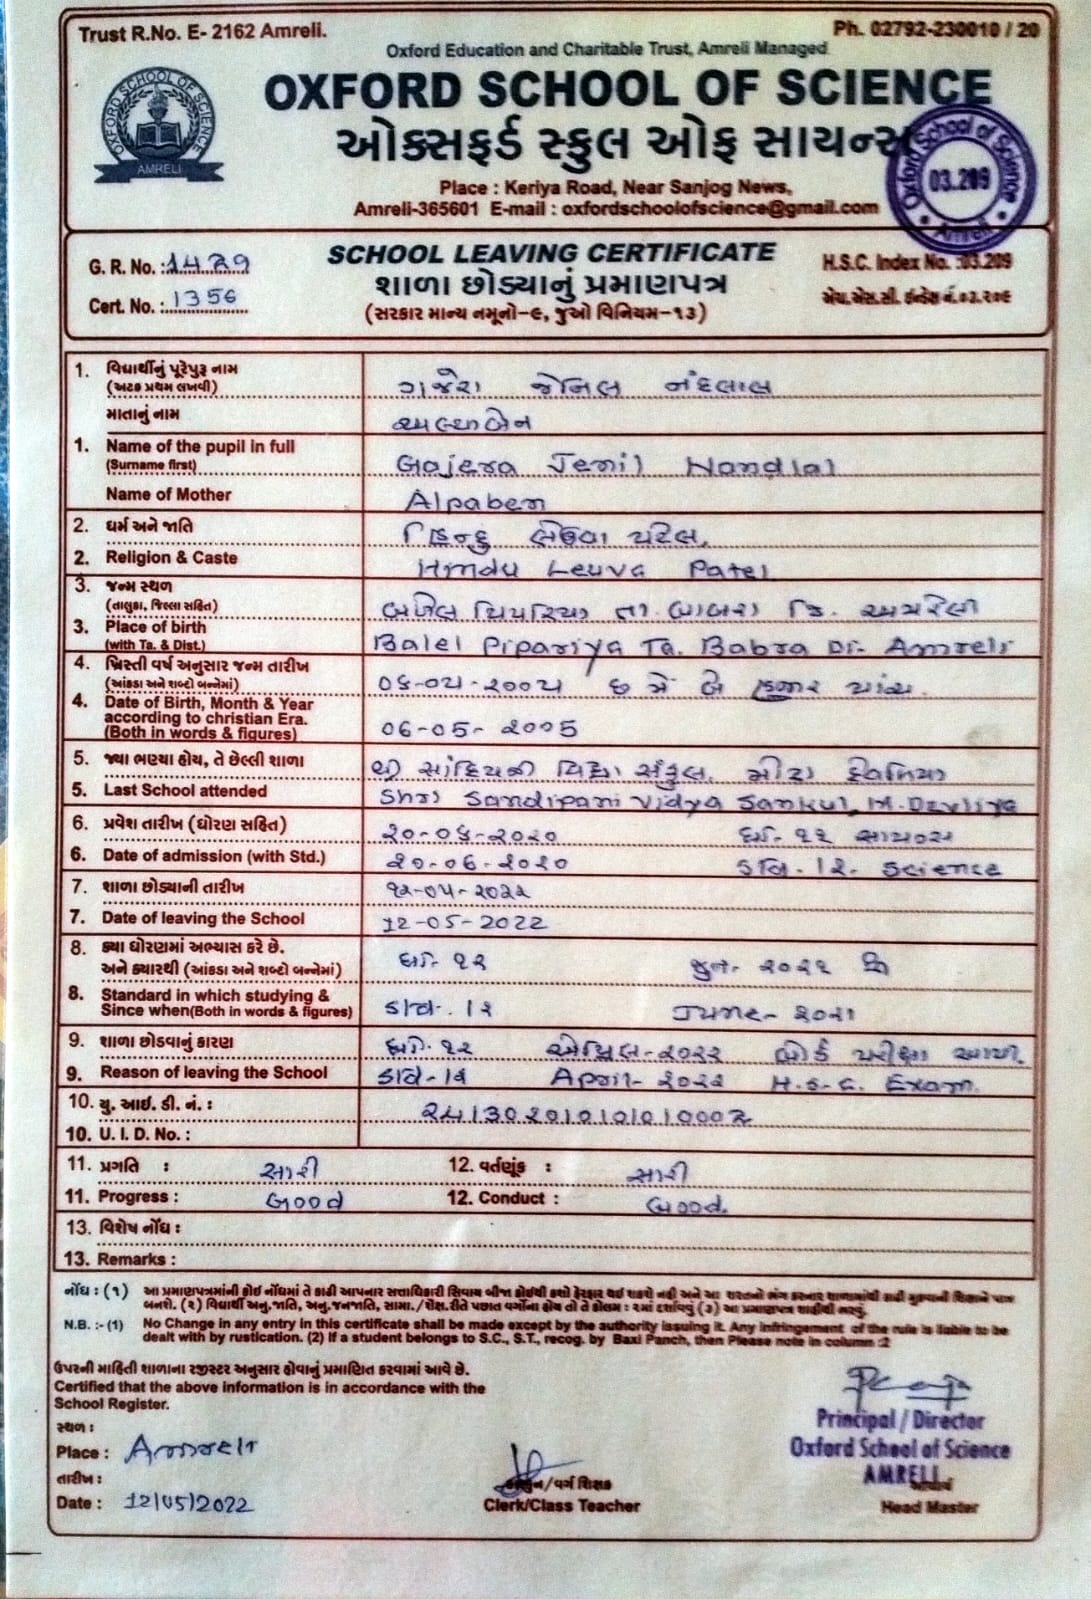 Trust R.No. E- 2162 Amreli.
Ph. 02792-230010 / 20
Oxford Education and Charitable Trust, Amreli Managed
OXFORD SCHOOL OF SCIENCE
ઓક્સફર્ડ સ્કુલ ઓફ સાયન્સ
OXFORD SCHOOL OF SCIENCE
AMRELI
Oxford School of Science
03.209
Amreli
Place : Keriya Road, Near Sanjog News,
Amreli-365601 E-mail : oxfordschoolofscience@gmail.com
G. R. No. : 1429
SCHOOL LEAVING CERTIFICATE
H.S.C. Index No. :03.209
શાળા છોડ્યાનું પ્રમાણપત્ર
Cert. No. : 1356
એચ.એસ.સી. ઈન્ડેક્ષ નં.૦૩.૨૦૯
(સરકાર માન્ય નમૂનો-૯, જુઓ વિનિયમ-૧૩)
1. વિદ્યાર્થીનું પૂરેપુરૂ નામ ગજેરા જેનિલ નંદલાલ
(અટક પ્રથમ લખવી)
માતાનું નામ અલ્પાબેન
1. Name of the pupil in full Gajera Jenil Nandlal
(Surname first)
Name of Mother Alpaben
2. ધર્મ અને જાતિ હિન્દુ લેઉવા પટેલ
2. Religion & Caste Hindu Leuva Patel
3. જન્મ સ્થળ પિપરિયા તા. બાબરા જિ. અમરેલી
(તાલુકા, જિલ્લા સહિત)
3. Place of birth Balel Pipariya Ta. Babra Di. Amreli
(with Ta. & Dist.)
4. ખ્રિસ્તી વર્ષ અનુસાર જન્મ તારીખ ૦૬-૦૫-૨૦૦૫ છ મે બે હજાર પાંચ
(આંકડા અને શબ્દો બન્નેમાં)
4. Date of Birth, Month & Year
according to christian Era. 06-05-2005
(Both in words & figures)
5. જ્યા ભણ્યા હોય, તે છેલ્લી શાળા શ્રી સાંદિપની વિદ્યા સંકુલ, મોટા દેવળિયા
5. Last School attended Shri Sandipani Vidya Sankul, M. Devliya
6. પ્રવેશ તારીખ (ધોરણ સહિત) ૨૦-૦૬-૨૦૨૦ ધો.-૧૧ સાયન્સ
6. Date of admission (with Std.) 20-06-2020 Science
7. શાળા છોડ્યાની તારીખ ૧૨-૦૫-૨૦૨૨
7. Date of leaving the School 12-05-2022
8. ક્યા ધોરણમાં અભ્યાસ કરે છે. ધો.-૧૨ જુન-૨૦૨૧
અને ક્યારથી (આંકડા અને શબ્દો બન્નેમાં)
8. Standard in which studying & Std.-12 June-2021
Since when(Both in words & figures)
9. શાળા છોડવાનું કારણ ધો.-૧૨ એપ્રિલ-૨૦૨૨ બોર્ડ પરીક્ષા આપી.
9. Reason of leaving the School Std-12 April-2022 H.S.C. Exam.
10. યુ. આઇ. ડી. નં. :
10. U. I. D. No. :
11. પ્રગતિ : સારી 12. વર્તણૂંક : સારી
11. Progress : Good 12. Conduct : Good.
13. વિશેષ નોંધ :
13. Remarks :
નોંધ : (૧) આ પ્રમાણપત્રમાંની કોઇ નોંધમાં તે કાઢી આપનાર સત્તાધિકારી સિવાય બીજા કોઇથી કશો ફેરફાર થઈ શકશે નહી અને આ શરતનો ભંગ કરનાર શાળામાંથી કાઢી મુકવાની શિક્ષાને પાત્ર
બનશે. (૨) વિદ્યાર્થી અનુ.જાતિ, અનુ.જનજાતિ, સામા./શૈક્ષ.રીતે પછાત વર્ગના હોય તો તે કોલમ : ૨માં દર્શાવવું (૩) આ પ્રમાણપત્ર શાહીથી ભરવું.
N.B. :- (1) No Change in any entry in this certificate shall be made except by the authority issuing it. Any infringement of the rule is liable to be
dealt with by rustication. (2) If a student belongs to S.C., S.T., recog. by Baxi Panch, then Please note in column :2
ઉપરની માહિતી શાળાના રજીસ્ટર અનુસાર હોવાનું પ્રમાણિત કરવામાં આવે છે.
Certified that the above information is in accordance with the
School Register.
સ્થળ :
Place : Amreli
તારીખ :
Date : 12/05/2022
કારકુન/વર્ગ શિક્ષક
Clerk/Class Teacher
Principal / Director
Oxford School of Science
AMRELI.
Head Master